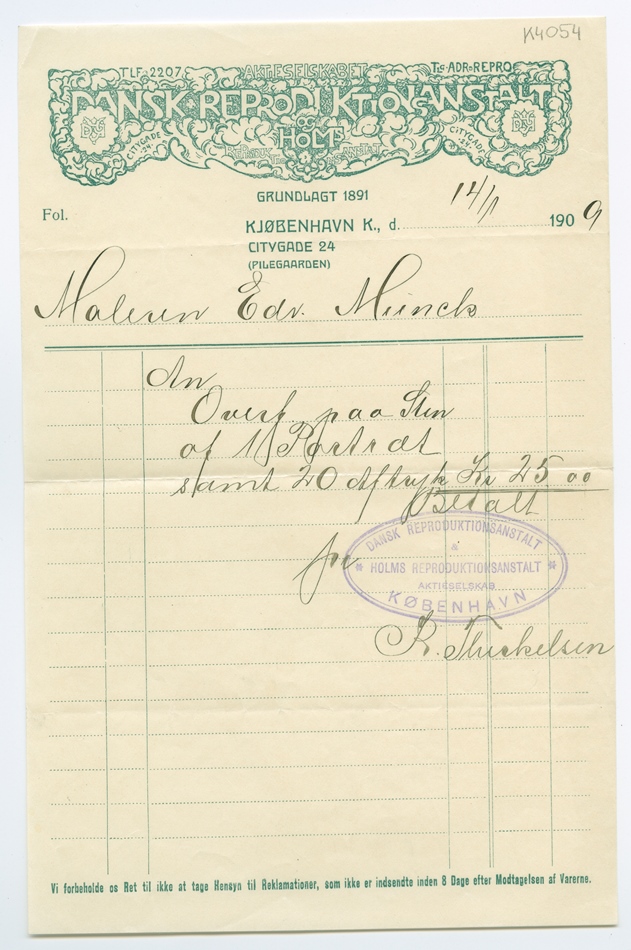 K4054
TLF. 2207. AKTIESELSKABET TLG. ADR. REPRO
DANSK REPRODUKTIONSANSTALT
OG
HOLMS
REPRODUKTIONSANSTALT
CITYGADE 24 CITYGADE 24
GRUNDLAGT 1891
Fol.
KJØBENHAVN K., d. 14/1 1909
CITYGADE 24
(PILEGAARDEN)
Maleren Edv. Münch
An
Overf. paa Sten
af 1 Portræt
samt 20 Aftryk Kr 25 00
Betalt
DANSK REPRODUKTIONSANSTALT
&
HOLMS REPRODUKTIONSANSTALT
AKTIESELSKAB
KØBENHAVN
for
Vi forbeholde os Ret til ikke at tage Hensyn til Reklamationer, som ikke er indsendte inden 8 Dage efter Modtagelsen af Varerne.